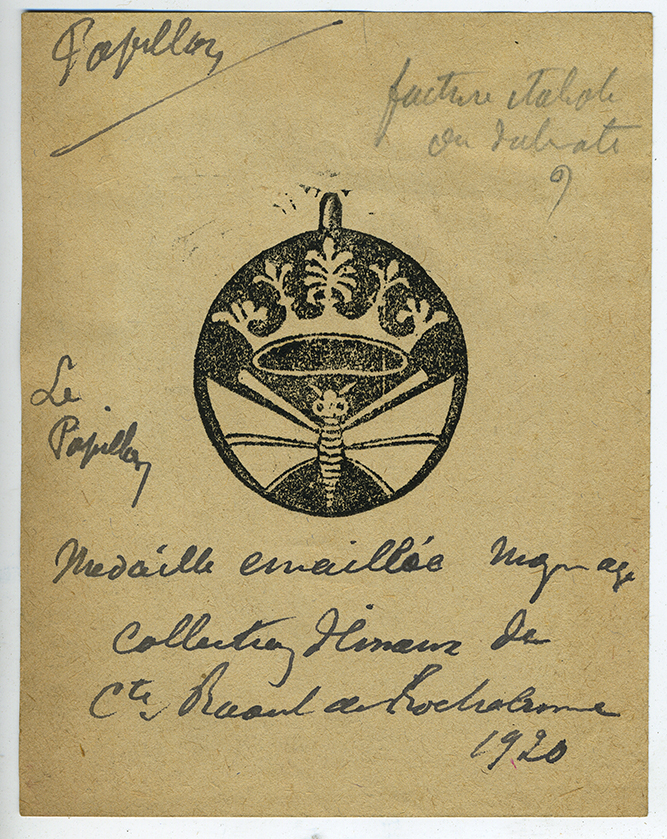 Papillon
facture
ou
?
Le
Papillon
Medaille emaillée Moyen age
Collection d'émaux du
Cte Raoul de Rochebrune
1920